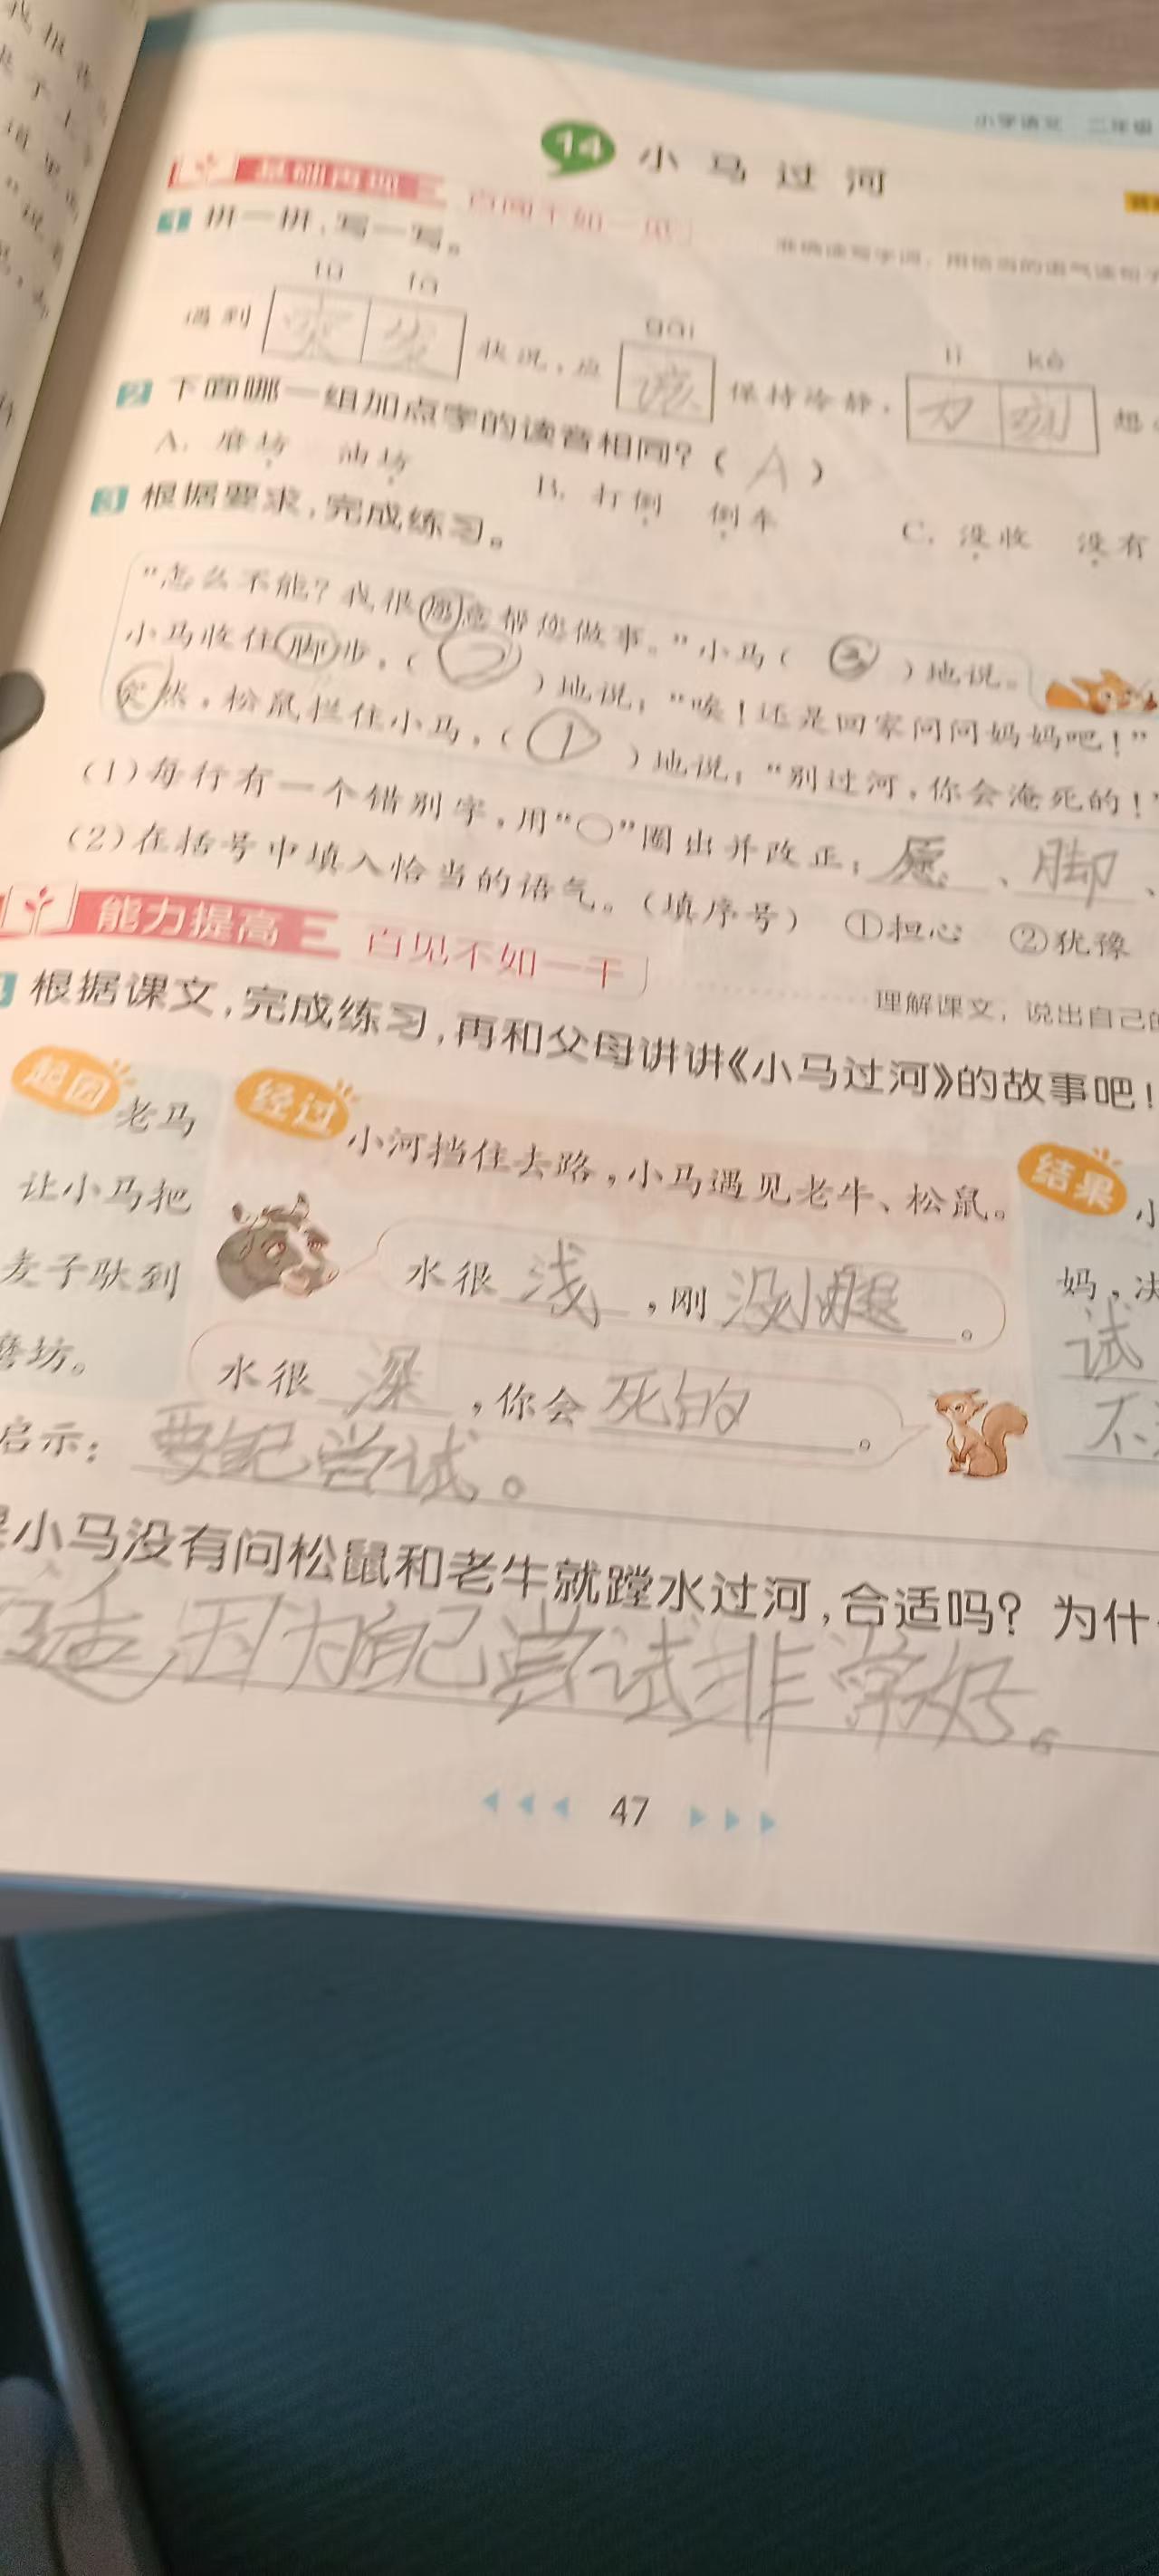 小学语文 二年级
14 小马过河
百闻不如一见
1 拼一拼,写一写。
tū fā
gāi
lì kè
遇到 突发 状况,应 该 保持冷静, 力刻 想
2 下面哪一组加点字的读音相同?( A )
A. 磨坊 油坊 B. 打倒 倒车 C. 没收 没有
3 根据要求,完成练习。
“怎么不能?我很愿意帮您做事。”小马( ③ )地说。
小马收住脚步,( ② )地说:“唉!还是回家问问妈妈吧!”
突然,松鼠拦住小马,( ① )地说:“别过河,你会淹死的!”
(1)每行有一个错别字,用“○”圈出并改正: 愿 、 脚 、
(2)在括号中填入恰当的语气。(填序号) ①担心 ②犹豫
能力提高 百见不如一干
理解课文,说出自己的
根据课文,完成练习,再和父母讲讲《小马过河》的故事吧!
起因 老马
让小马把
麦子驮到
磨坊。
经过 小河挡住去路,小马遇见老牛、松鼠。
水很 浅 ,刚 没小腿 。
水很 深 ,你会 死的 。
结果 小
妈,决
试
不
启示: 要自己尝试。
小马没有问松鼠和老牛就蹚水过河,合适吗?为什
适,因为自己尝试非常好。
47